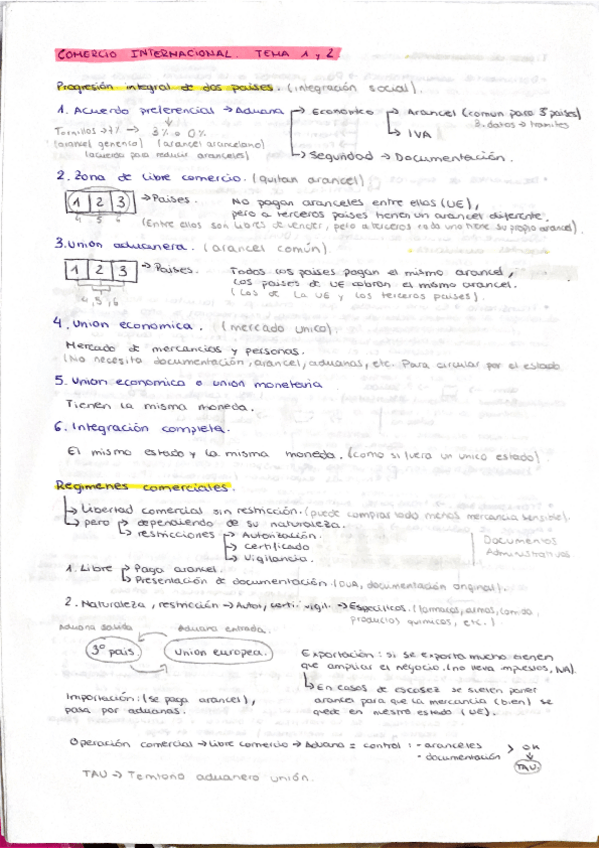 COMERCIO INTERNACIONAL. TEMA 1 y 2.
Progresión integral de dos paises. (integración social).
1. Acuerdo preferencial → Aduana → Economico → Arancel (comun para 3 paises)
3. datos → tramites
Tornillos → 7% → 3% o 0% → IVA
(arancel generico) (arancel arancelario)
(acuerdo para reducir aranceles) → Seguridad → Documentación.
2. Zona de libre comercio. (quitan arancel)
1 2 3 → Paises. No pagan aranceles entre ellos (UE),
4 5 6 pero a terceros paises tienen un arancel diferente.
(Entre ellos son libres de vender, pero a terceros cada uno tiene su propio arancel).
3. Union aduanera. (arancel común).
1 2 3 → Paises. Todos los paises pagan el mismo arancel,
los paises de UE cobran el mismo arancel.
4, 5, 6 (Los de la UE y los terceros paises).
4. Union economica. (mercado unico).
Mercado de mercancias y personas.
(No necesita documentación, arancel, aduanas, etc. Para circular por el estado
5. Union economica o union monetaria
Tienen la misma moneda.
6. Integración completa.
El mismo estado y la misma moneda. (como si fuera un unico estado).
Regimenes comerciales.
→ Libertad comercial sin restricción. (puede comprar todo menos mercancia sensible).
→ pero → dependiendo de su naturaleza.
→ restricciones → Autorización.
→ certificado
→ vigilancia.
Documentos
Administrativos
1. Libre → Paga arancel.
→ Presentación de documentación. (DUA, documentación original).
2. Naturaleza, restricción → Autor, certi. vigil. → Especificos. (farmacos, armas, comida,
productos quimicos, etc.)
Aduana salida Aduana entrada.
3º pais Union europea.
Exportación: si se exporta mucho tienen
que ampliar el negocio. (no lleva impuestos, IVA).
→ En casos de escasez se suelen poner
arancel para que la mercancia (bien) se
quede en nuestro estado (UE).
Importación: (se paga arancel),
pasa por aduanas.
Operación comercial → Libre comercio → Aduana = control: - aranceles
- documentación > OK
TAU
TAU → Territorio aduanero unión.